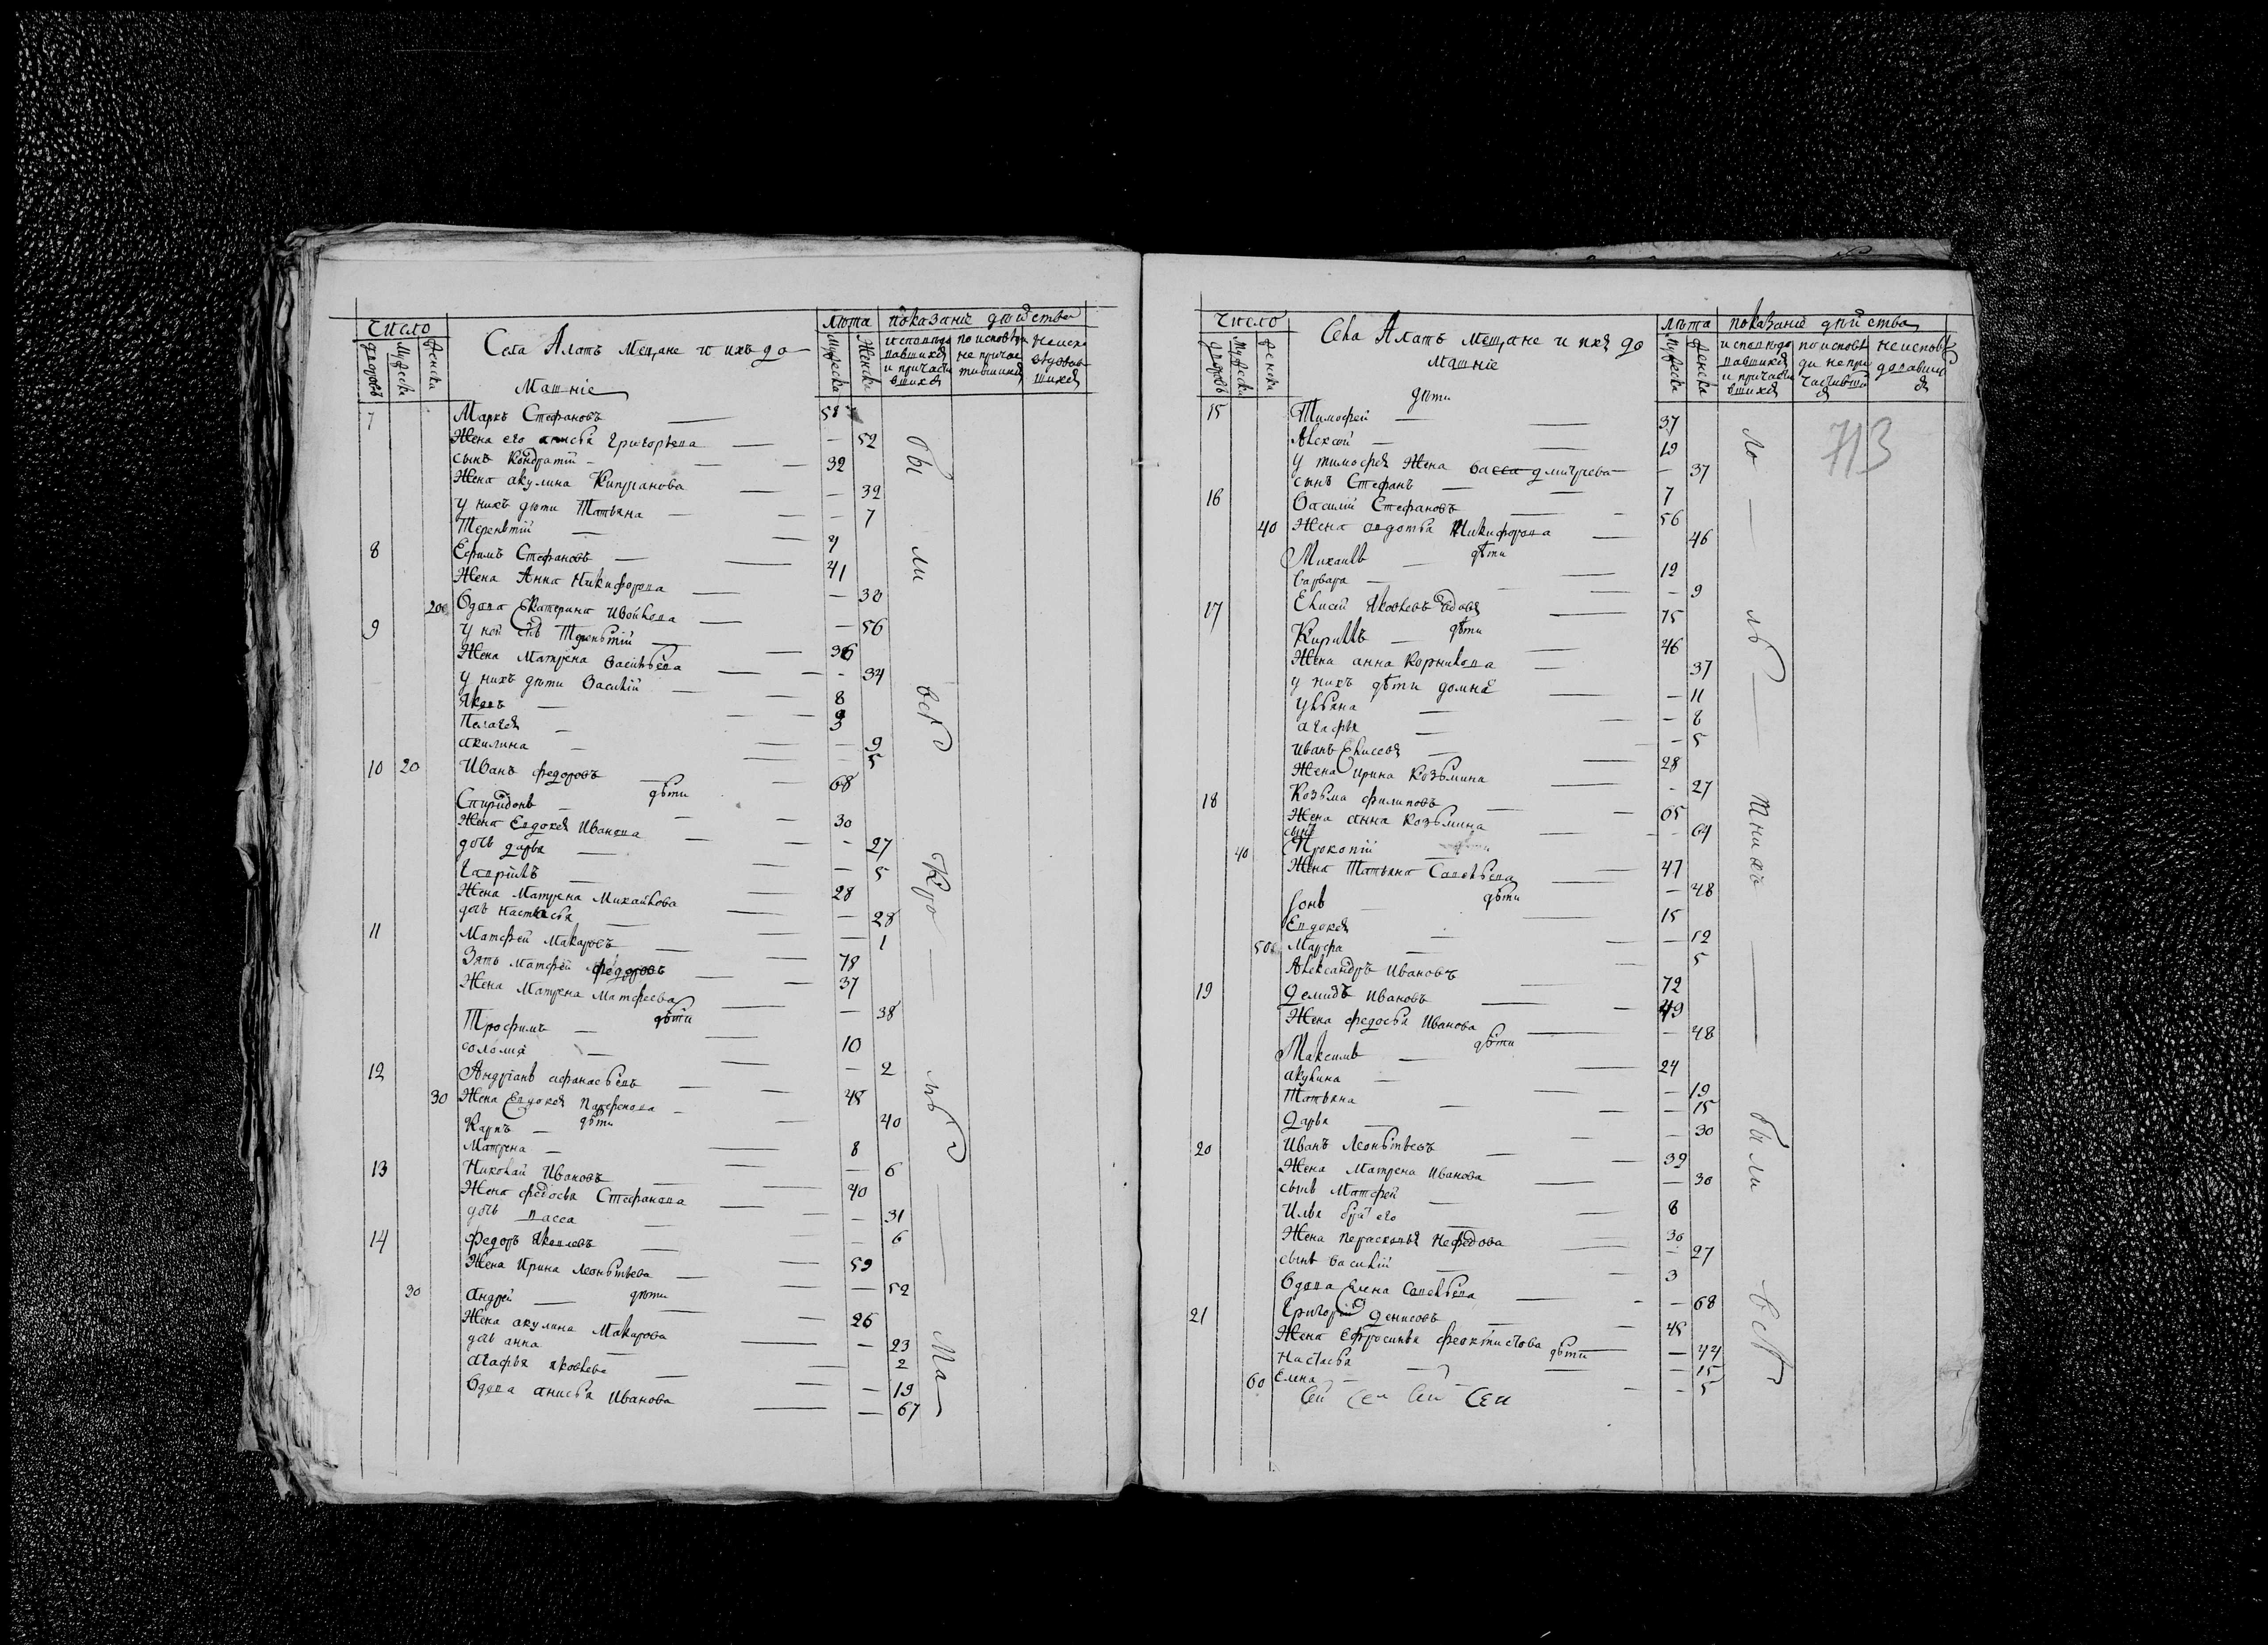 Число
дворовъ
Мужеска
женска
Села Алатъ Мещане и ихъ до
Машніе
лѣта
Мужеска
Женска
показаніе дѣйства
исповѣдо
вавшихся
и причасти
вшихся
по исповѣди
не причас
тившихся
неиспо
вѣдовав
шихся
7 Маркъ Стефановъ — 58
Жена его анисья Григорьева — — 52
сынъ Кондратій — — 32
Жена акулина Кипрянова — — 32
у нихъ дѣти Татьяна — — 7
Терентій — — 4
8 Ефимъ Стефановъ — — 41
Жена Анна Никифорова — — 30
20 Вдова Екатерина Ивойлова — — 56
9 У ней сынъ Терентій — — 36
Жена Матрена Васильева — — 34
у нихъ дѣти Василій — 8
Яковъ — — 3
Пелагея — — 9
акилина — — 5
10 20 Иванъ федоровъ — 68
дѣти
Спиридонъ — — 30
Жена Евдокея Иванова — — 27
дочь дарья — — 5
Гаврілъ — — 28
Жена Матрена Михайлова — — 28
дочь настасья — — 1
11 Матфей Макаровъ — 78
Зять Матфей федоровъ — 37
Жена Матрена Матфеева — — 38
дѣти
Трофимъ — — 10
соломія — — 2
12 Андріанъ афанасьевъ — 48
30 Жена Евдокея Парфенова — — 40
дѣти
Карпъ — — 8
Матрена — — 6
13 Николай Ивановъ — 40
Жена федосья Стефанова — — 31
дочь васса — — 6
14 федоръ Яковлевъ — 59
Жена Ирина Леоньтьева — — 52
дѣти
30 андрей — — 26
Жена акулина Макарова — — 23
дочь анна — — 2
агафья яковлева — — 19
Вдова анисья Иванова — — 67
бы
ли
всѣ
Кро
мѣ
Ма
Число
дворовъ
Мужеска
женска
Села Алатъ мещане и ихъ до
машніе
лѣта
Мужеска
женска
показаніе дѣйства
исповѣдо
вавшихся
и причасти
вшихся
по исповѣ
ди не при
частивши
ся
неисповѣ
довавших
ся
713
дѣти
15 Тимофей — — 37
Алексей — — 19
у тимофея Жена васса дмитрева — — 37
сынъ Стефанъ — — 7
16 Василій Стефановъ — 56
40 Жена авдотья Никифорова — 46
дѣти
Михаилъ — — 12
варвара — — 9
17 Елисей Яковлевъ вдовъ 75
дѣти
Кирилъ — 46
Жена анна Корнилова — 37
у нихъ дѣти домна — 11
ульяна — — 8
агафья — — 5
иванъ Елисеевъ — 28
Жена Ирина Козьмина — 27
18 Козьма филиповъ — 65
Жена анна Козьмина — — 64
сынъ
40 Прокопій — 47
Жена Татьяна Савельева — — 48
дѣти
Іонъ — 15
Евдокея — — 12
50 Марфа — — 5
Александръ Ивановъ 72
19 Демидъ Ивановъ — 49
Жена федосья Иванова — — 48
дѣти
Максимъ — — 24
акулина — — 19
Татьяна — — 15
Дарья — — 30
20 Иванъ Леоньтьевъ — 32
Жена Матрена Иванова — — 30
сынъ Матфей — — 8
Илья братъ его — 30
Жена перасковья Нефедова — — 27
сынъ василій — — 3
Вдова Елена Савельева — — 68
21 Григорій денисовъ — 48
Жена Ефросинья феоктистова — — 44
дѣти
Настасья — — 15
60 Елена — — 5
Сей Сей Сей Сей
ло
лѣ
тнихъ
были
всѣ